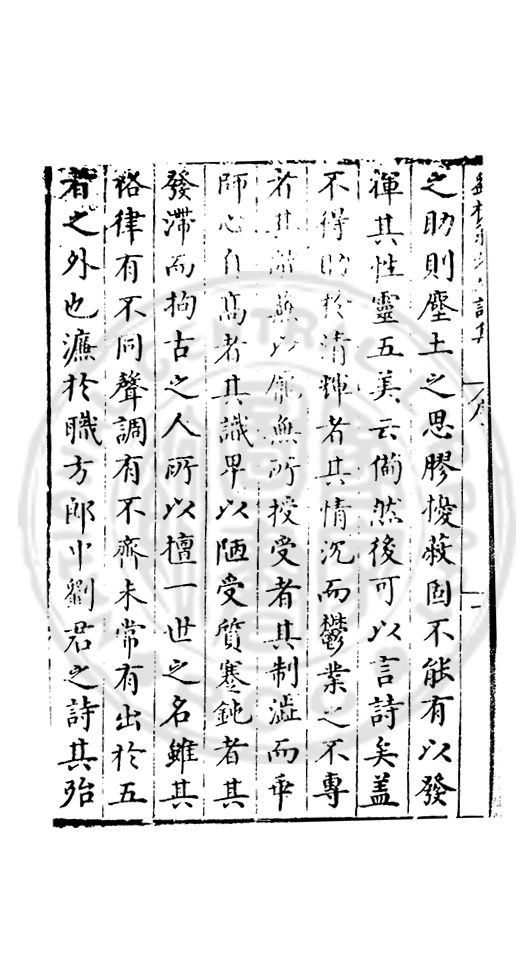 之助則塵土之思膠擾蔽固不能有以發
揮其性靈五美云備然後可以言詩矣盖
不得助於清輝者其情沉而鬱業之不專
者其辭蕪以厖無所授受者其制澁而乖
師心自髙者其識卑以陋受質蹇鈍者其
發滯而拘古之人所以擅一世之名雖其
格律有不同聲調有不齊未常有出於五
者之外也濂於職方郎中劉君之詩其殆